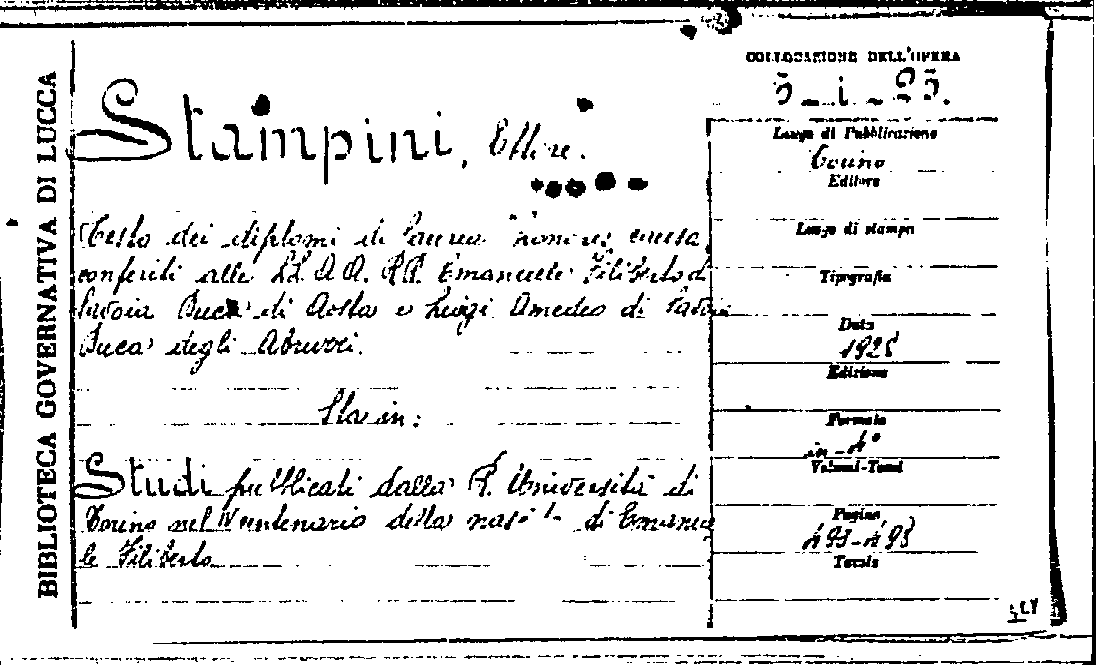 BIBLIOTECA GOVERNATIVA DI LUCCA
Stampini, Ettore.
Testo dei diplomi di laurea "honoris causa
conferiti alle LL. AA. RR. Emanuele Filiberto di
Savoia Duca di Aosta e Luigi Amedeo di Savoia
Duca degli Abruzzi.
Sta in:
Studi pubblicati dalla R. Università di
Torino nel IV centenario della nascita di Emanue
le Filiberto
COLLOCAZIONE DELL'OPERA
Luogo di Pubblicazione
Torino
Editore
Luogo di stampa
Tipografia
Data
1928
Edizione
Formato
in-4°
Volumi-Tomi
Pagine
Tavole